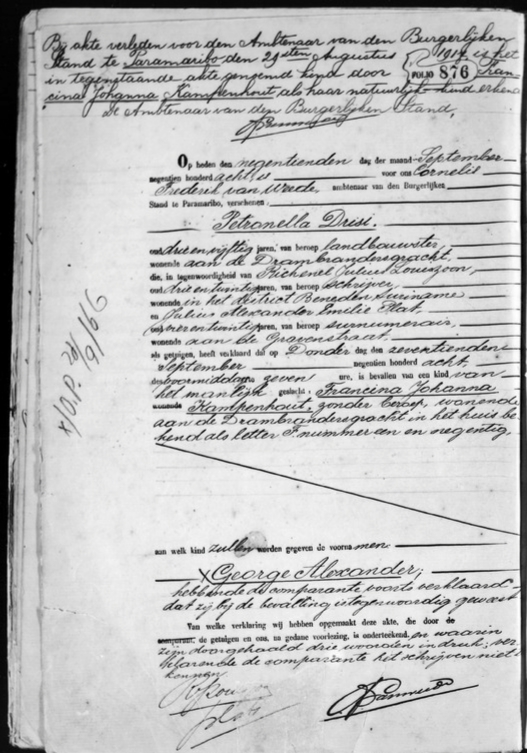 By akte verleden voor den Ambtenaar van den Burgerlijken
Stand te Paramaribo den 29sten Augustus 1914 is het
in tegenstaande akte genoemd kind door Fran-
FOLIO 876
cina Johanna Kampenhout als haar natuurlijk kind erkend
De Ambtenaar van den Burgerlijken Stand,
Op heden den negentienden dag der maand September
negentien honderd acht, is voor ons Cornelis
Frederik van Weede, ambtenaar van den Burgerlijken
Stand te Paramaribo, verschenen:
Petronella Drisi.
oud drie en vijftig jaren, van beroep landbouwster,
wonende aan de Drambrandersgracht.
die, in tegenwoordigheid van Richenel Julius
oud drie en twintig jaren, van beroep schrijver,
wonende in het district Beneden Suriname
en Julius Alexander Emilie Plat,
oud vier en twintig jaren, van beroep surnumerair,
wonende aan de Gravenstraat,
als getuigen, heeft verklaard dat op Donderdag den zeventienden
September negentien honderd acht
des voormiddags zeven ure, is bevallen van een kind van
het manlijk geslacht: Francina Johanna
wonende Kampenhout, zonder beroep, wonende
aan de Drambrandersgracht in het huis be-
kend als letter F. nummer een en negentig,
aan welk kind zullen worden gegeven de voornamen.
X George Alexander;
hebbende de comparante voorts verklaard
dat zij bij de bevalling is tegenwoordig geweest
Van welke verklaring wij hebben opgemaakt deze akte, die door de
comparant, de getuigen en ons, na gedane voorlezing, is onderteekend, en waarin
zijn doorgehaald drie woorden in druk; ver-
klarende de comparante het schrijven niet te
kennen